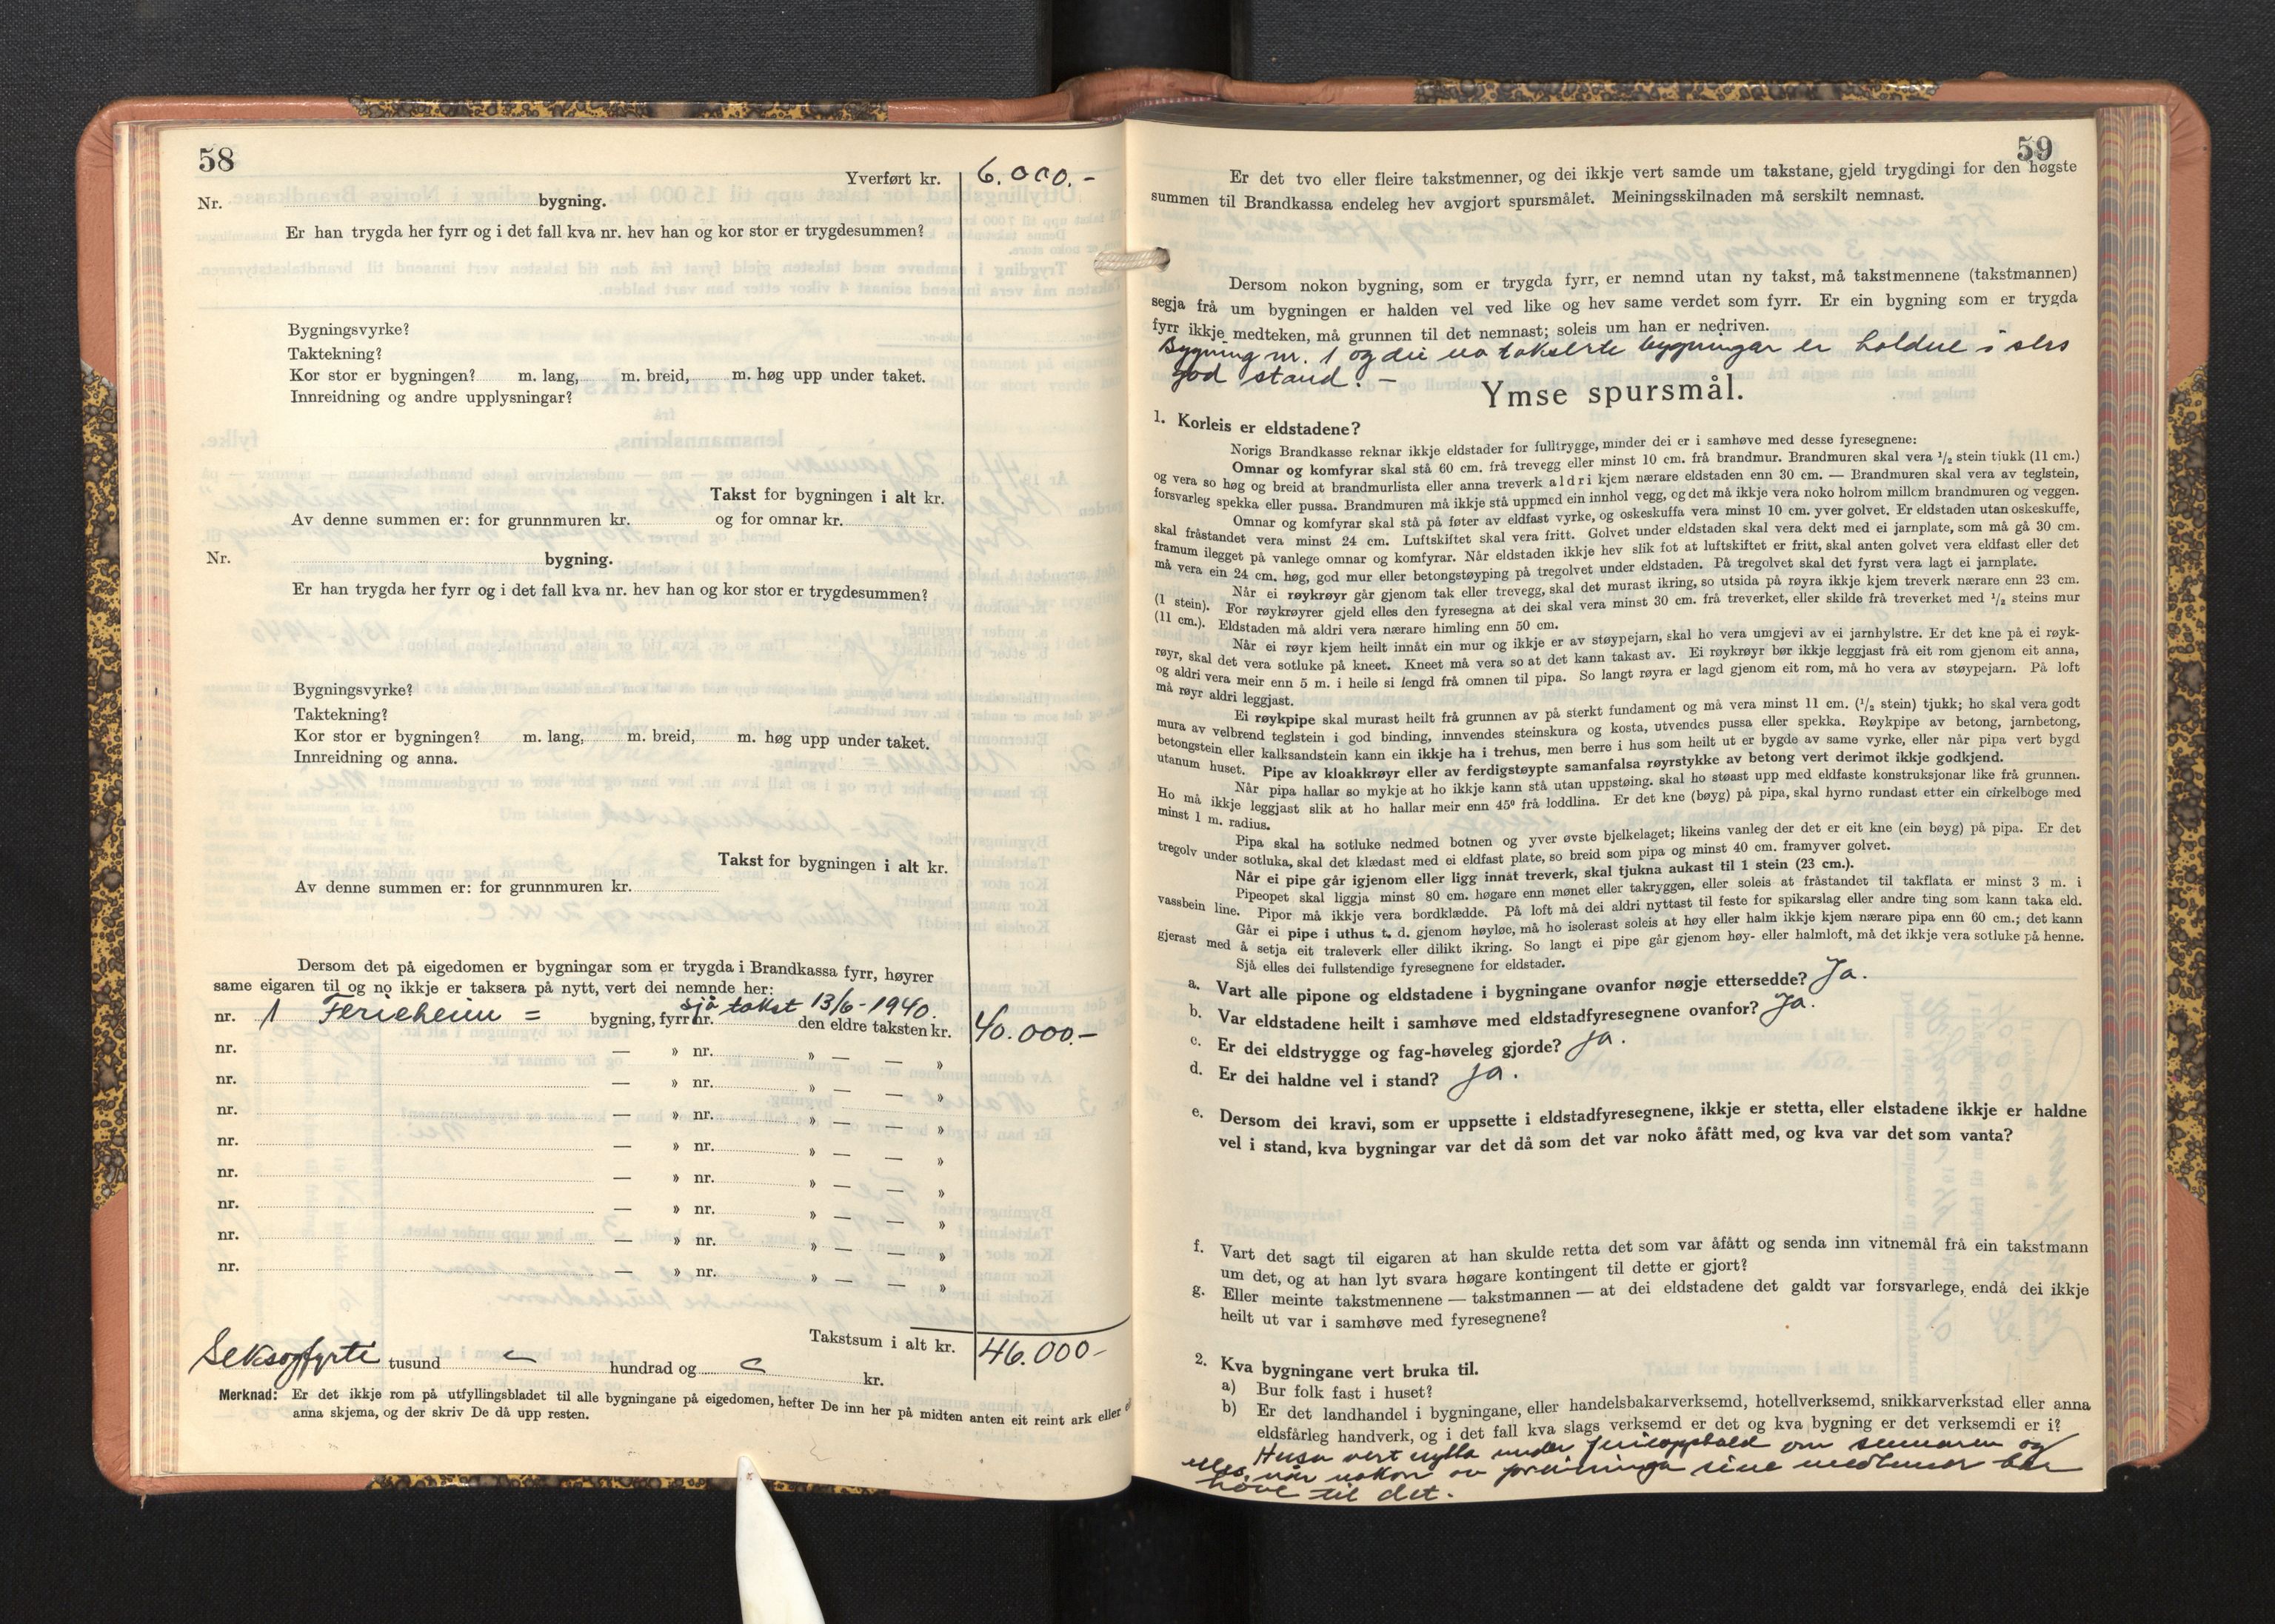 58
Yverført kr. 6.000.-
Nr. bygning.
Er han trygda her fyrr og i det fall kva nr. hev han og kor stor er trygdesummen?
Bygningsvyrke?
Taktekning?
Kor stor er bygningen? m. lang, m. breid, m. høg upp under taket.
Innreidning og andre upplysningar?
Takst for bygningen i alt kr.
Av denne summen er: for grunnmuren kr. og for omnar kr.
Nr. bygning.
Er han trygda her fyrr og i det fall kva nr. hev han og kor stor er trygdesummen?
Bygningsvyrke?
Taktekning?
Kor stor er bygningen? m. lang, m. breid, m. høg upp under taket.
Innreidning og anna.
Takst for bygningen i alt kr.
Av denne summen er: for grunnmuren kr.
Dersom det på eigedomen er bygningar som er trygda i Brandkassa fyrr, høyrer
same eigaren til og no ikkje er taksera på nytt, vert dei nemnde her:
nr. 1 Ferieheim = bygning, fyrr nr. sjå takst 13/6-1940. den eldre taksten kr. 40.000.-
nr. — » nr. » — — »
nr. — » nr. » — — »
nr. — » nr. » — — »
nr. — » nr. » — — »
nr. — » nr. » — — »
nr. — » nr. » — — »
nr. — » nr. » — — »
nr. — » nr. » — — »
Takstsum i alt kr. 46.000-
Seksogfyrti tusund hundrad og kr.
Merknad: Er det ikkje rom på utfyllingsbladet til alle bygningane på eigedomen, hefter De inn her på midten anten eit reint ark eller
anna skjema, og der skriv De då upp resten.
59
Er det tvo eller fleire takstmenner, og dei ikkje vert samde um takstane, gjeld trygdingi for den høgste
summen til Brandkassa endeleg hev avgjort spursmålet. Meiningsskilnaden må serskilt nemnast.
Dersom nokon bygning, som er trygda fyrr, er nemnd utan ny takst, må takstmennene (takstmannen)
segja frå um bygningen er halden vel ved like og hev same verdet som fyrr. Er ein bygning som er trygda
fyrr ikkje medteken, må grunnen til det nemnast; soleis um han er nedriven.
Bygning nr. 1 og dei no takserte bygningar er haldne i
god stand. -
Ymse spursmål.
1. Korleis er eldstadene?
Norigs Brandkasse reknar ikkje eldstader for fulltrygge, minder dei er i samhøve med desse fyresegnene:
Omnar og komfyrar skal stå 60 cm. frå trevegg eller minst 10 cm. frå brandmur. Brandmuren skal vera 1/2 stein tjukk (11 cm.)
og vera so høg og breid at brandmurlista eller anna treverk aldri kjem nærare eldstaden enn 30 cm. — Brandmuren skal vera av teglstein,
forsvarleg spekka eller pussa. Brandmuren må ikkje stå uppmed ein innhol vegg, og det må ikkje vera noko holrom millom brandmuren og veggen.
Omnar og komfyrar skal stå på føter av eldfast vyrke, og oskeskuffa vera minst 10 cm. yver golvet. Er eldstaden utan oskeskuffe,
skal fråstandet vera minst 24 cm. Luftskiftet skal vera fritt. Golvet under eldstaden skal vera dekt med ei jarnplate, som må gå 30 cm.
framum ilegget på vanlege omnar og komfyrar. Når eldstaden ikkje hev slik fot at luftskiftet er fritt, skal anten golvet vera eldfast eller det
må vera ein 24 cm. høg, god mur eller betongstøyping på tregolvet under eldstaden. På tregolvet skal det fyrst vera lagt ei jarnplate.
Når ei røykrøyr går gjenom tak eller trevegg, skal det murast ikring, so utsida på røyra ikkje kjem treverk nærare enn 23 cm.
(1 stein). For røykrøyrer gjeld elles den fyresegna at dei skal vera minst 30 cm. frå treverket, eller skilde frå treverket med 1/2 steins mur
(11 cm.). Eldstaden må aldri vera nærare himling enn 50 cm.
Når ei røyr kjem heilt innåt ein mur og ikkje er av støypejarn, skal ho vera umgjevi av ei jarnhylstre. Er det kne på ei røyk-
røyr, skal det vera sotluke på kneet. Kneet må vera so at det kann takast av. Ei røykrøyr bør ikkje leggjast frå eit rom gjenom eit anna,
og aldri vera meir enn 5 m. i heile si lengd frå omnen til pipa. So langt røyra er lagd gjenom eit rom, må ho vera av støypejarn. På loft
må røyr aldri leggjast.
Ei røykpipe skal murast heilt frå grunnen av på sterkt fundament og må vera minst 11 cm. (1/2 stein) tjukk; ho skal vera godt
mura av velbrend teglstein i god binding, innvendes steinskura og kosta, utvendes pussa eller spekka. Røykpipe av betong, jarnbetong,
betongstein eller kalksandstein kann ein ikkje ha i trehus, men berre i hus som heilt ut er bygde av same vyrke, eller når pipa vert bygd
utanum huset. Pipe av kloakkrøyr eller av ferdigstøypte samanfalsa røyrstykke av betong vert derimot ikkje godkjend.
Når pipa hallar so mykje at ho ikkje kann stå utan uppstøing. skal ho støast upp med eldfaste konstruksjonar like frå grunnen.
Ho må ikkje leggjast slik at ho hallar meir enn 45° frå loddlina. Er det kne (bøyg) på pipa, skal hyrno rundast etter ein cirkelboge med
minst 1 m. radius.
Pipa skal ha sotluke nedmed botnen og yver øvste bjelkelaget; likeins vanleg der det er eit kne (ein bøyg) på pipa. Er det
tregolv under sotluka, skal det klædast med ei eldfast plate, so breid som pipa og minst 40 cm. framyver golvet.
Når ei pipe går igjenom eller ligg innåt treverk, skal tjukna aukast til 1 stein (23 cm.).
Pipeopet skal liggja minst 80 cm. høgare enn mønet eller takryggen, eller soleis at fråstandet til takflata er minst 3 m. i
vassbein line. Pipor må ikkje vera bordklædde. På loft må dei aldri nyttast til feste for spikarslag eller andre ting som kann taka eld.
Går ei pipe i uthus t. d. gjenom høyløe, må ho isolerast soleis at høy eller halm ikkje kjem nærare pipa enn 60 cm.; det kann
gjerast med å setja eit traleverk eller dilikt ikring. So langt ei pipe går gjenom høy- eller halmloft, må det ikkje vera sotluke på henne.
Sjå elles dei fullstendige fyresegnene for eldstader.
a. Vart alle pipone og eldstadene i bygningane ovanfor nøgje ettersedde? Ja.
b. Var eldstadene heilt i samhøve med eldstadfyresegnene ovanfor? Ja.
c. Er dei eldstrygge og fag-høveleg gjorde? Ja.
d. Er dei haldne vel i stand? Ja.
e. Dersom dei kravi, som er uppsette i eldstadfyresegnene, ikkje er stetta, eller elstadene ikkje er haldne
vel i stand, kva bygningar var det då som det var noko åfått med, og kva var det som vanta?
f. Vart det sagt til eigaren at han skulde retta det som var åfått og senda inn vitnemål frå ein takstmann
um det, og at han lyt svara høgare kontingent til dette er gjort?
g. Eller meinte takstmennene — takstmannen — at dei eldstadene det galdt var forsvarlege, endå dei ikkje
heilt ut var i samhøve med fyresegnene?
2. Kva bygningane vert bruka til.
a) Bur folk fast i huset?
b) Er det landhandel i bygningane, eller handelsbakarverksemd, hotellverksemd, snikkarverkstad eller anna
eldsfårleg handverk, og i det fall kva slags verksemd er det og kva bygning er det verksemdi er i?
Husa vert nytta under ferieopphald om sumaren og
elles, når nokon av foreininga sine medlemer har
høve til det.